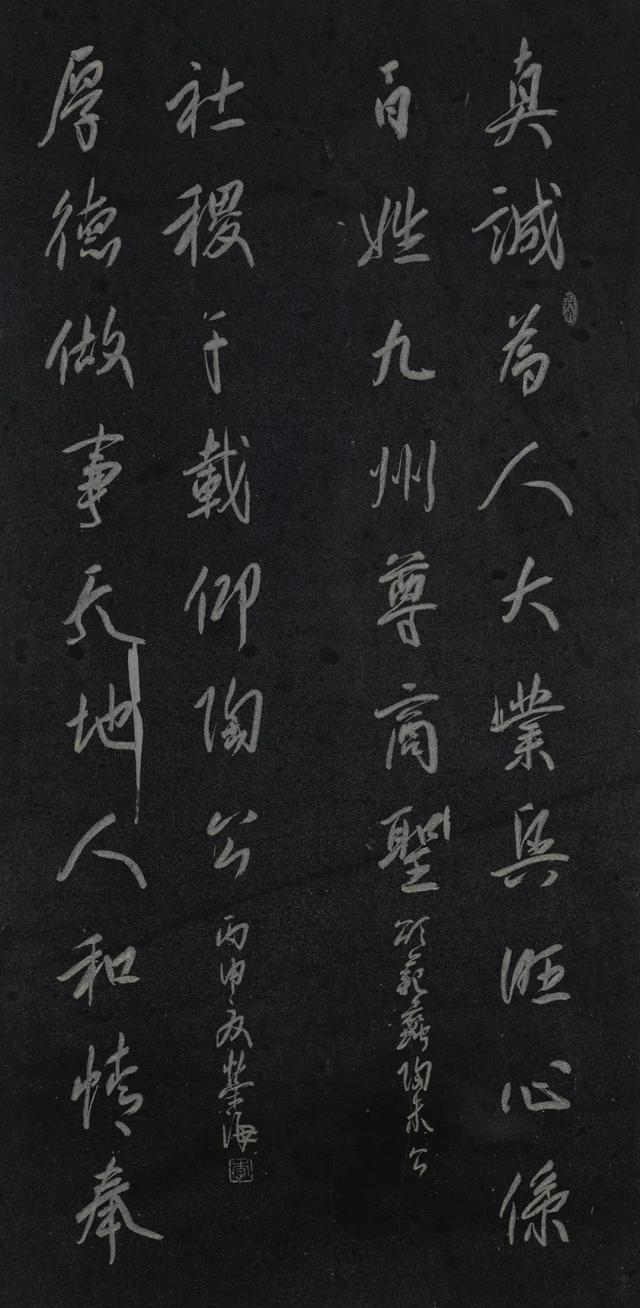 真誠為人大業興旺心係
百姓九州尊商聖
頌范蠡陶朱公
厚德做事天地人和情奉
社稷千載仰陶公
丙申夏榮海